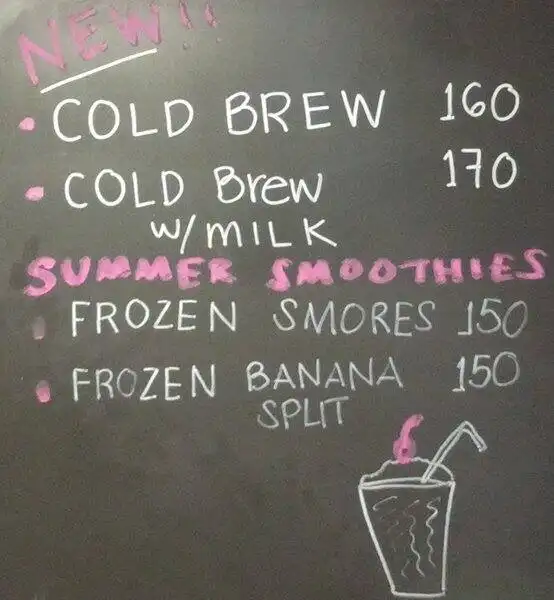 NEW!!
• COLD BREW 160
• COLD Brew 170
W/MILK
SUMMER SMOOTHIES
• FROZEN SMORES 150
• FROZEN BANANA 150
SPLIT